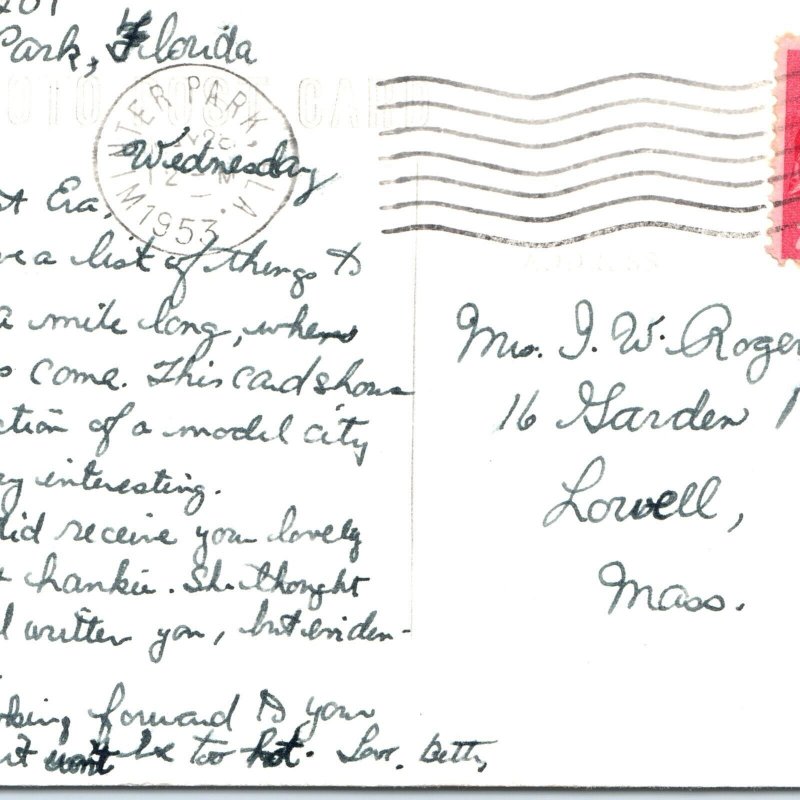 Park, Florida
PHOTO POST CARD
WINTER PARK
FLA.
12 - M
1953
Wednesday
Era,
a list of things to
a mile long, when
come. This card shows
of a model city
interesting.
did receive your lovely
hankie. She thought
written you, but eviden-
forward to your
it won't be too hot. Love, Betty
Mrs. I. W. Roger
16 Garden
Lowell,
Mass.